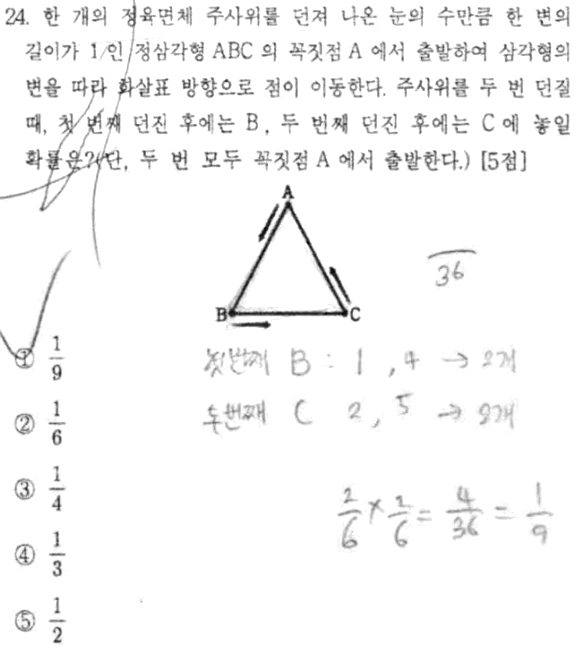 24. 한 개의 정육면체 주사위를 던져 나온 눈의 수만큼 한 변의
길이가 1인 정삼각형 ABC의 꼭짓점 A에서 출발하여 삼각형의
변을 따라 화살표 방향으로 점이 이동한다. 주사위를 두 번 던질
때, 첫 번째 던진 후에는 B, 두 번째 던진 후에는 C에 놓일
확률은?(단, 두 번 모두 꼭짓점 A에서 출발한다.) [5점]
A
B
C
/36
① 1/9
첫번째 B : 1, 4 → 2개
② 1/6
두번째 C 2, 5 → 2개
③ 1/4
2/6 × 2/6 = 4/36 = 1/9
④ 1/3
⑤ 1/2